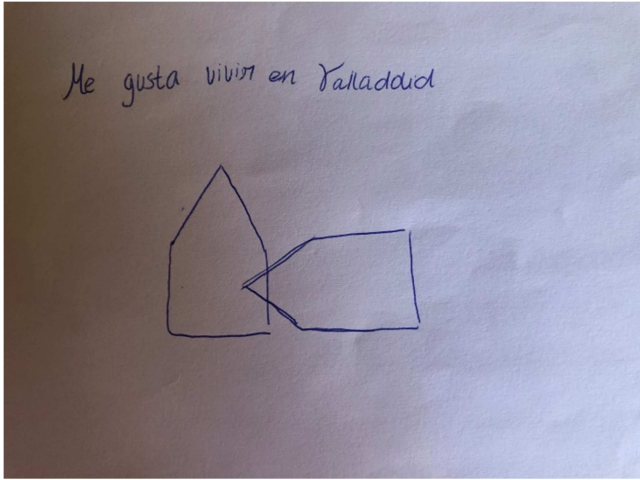 Me gusta vivir en Valladolid